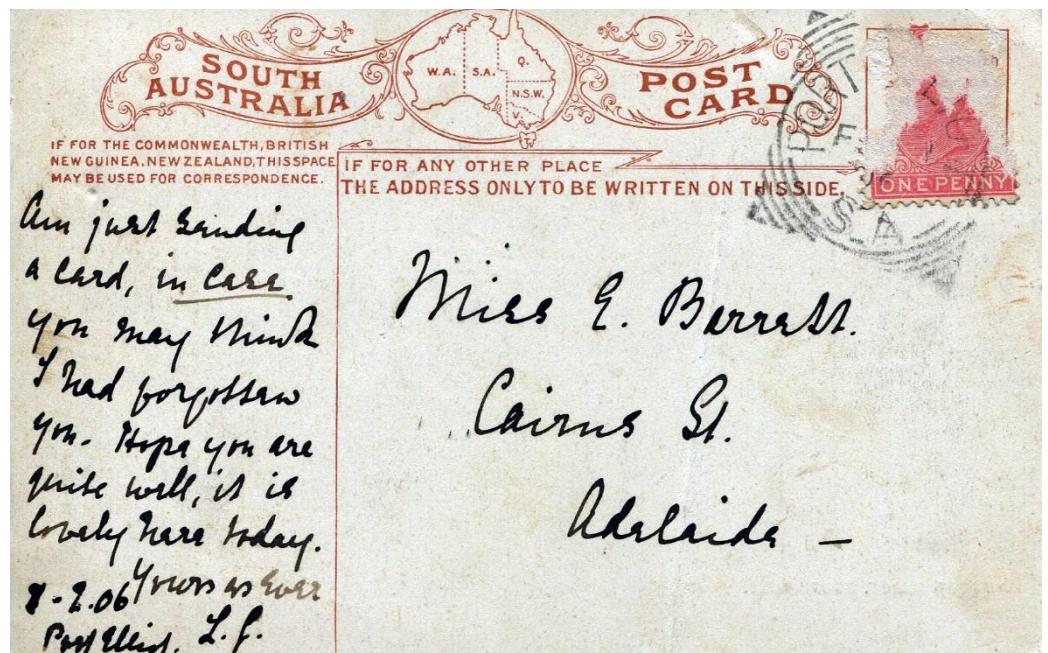 SOUTH
AUSTRALIA
W.A. S.A. Q.
N.S.W.
V.
POST
CARD
IF FOR THE COMMONWEALTH, BRITISH
NEW GUINEA, NEW ZEALAND, THIS SPACE
MAY BE USED FOR CORRESPONDENCE.
IF FOR ANY OTHER PLACE
THE ADDRESS ONLY TO BE WRITTEN ON THIS SIDE.
ONE PENNY
PORT
S.A
Am just sending
a card, in case
you may think
I had forgotten
you. Hope you are
quite well, it is
lovely here today.
Yours as Ever
8-2.06
Port Elliot. L.f.
Miss E. Barrett.
Cairns St.
Adelaide –